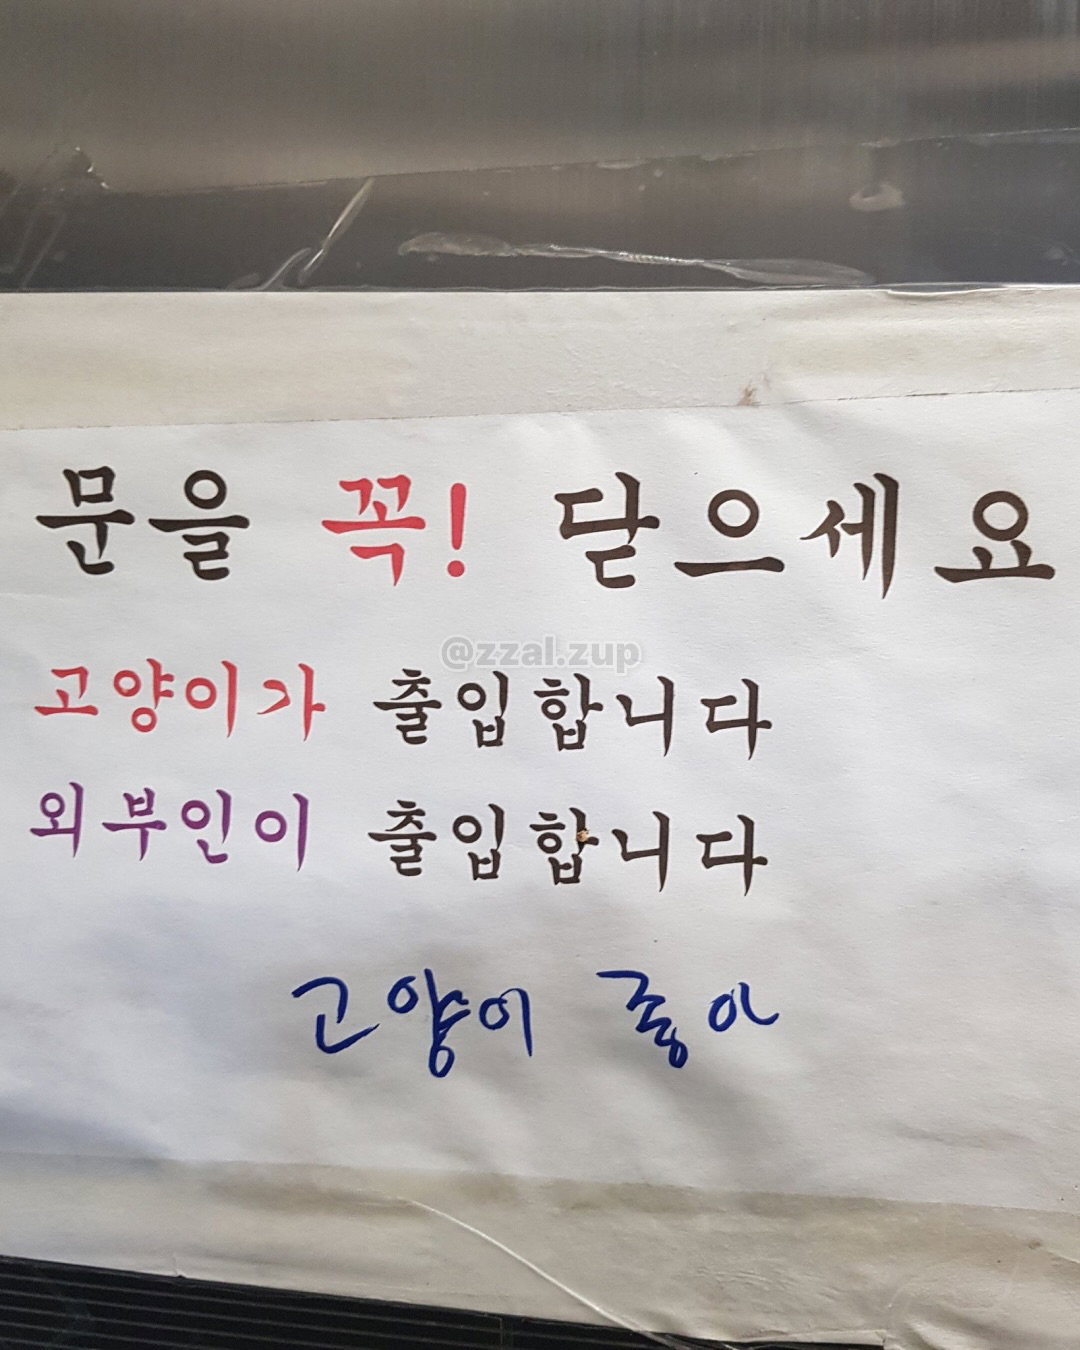 문을 꼭! 닫으세요
@zzal.zup
고양이가 출입합니다
외부인이 출입합니다
고양이 좋아